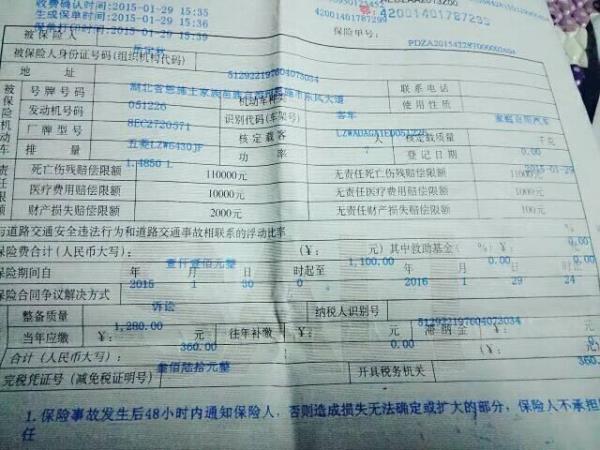 收费确认时间:2015-01-29 15:35
生成保单时间:2015-01-29 15:36
鄂:42001401787299
保险单号:
被保险人
被保险人身份证号码(组织机构代码)
512922197604073034
地 址
联系电话
号牌号码
机动车种类
使用性质
051226
客车
家庭自用汽车
发动机号码
8EC2720571
识别代码(车架号)
LZWADAGA1ED051226
厂牌型号
五菱LZW6430JF
核定载客
人
核定载质量
千克
0.00
排 量
1.4850 L
功 率
登记日期
2015-01-29
死亡伤残赔偿限额
110000元
无责任死亡伤残赔偿限额
11000元
医疗费用赔偿限额
10000元
无责任医疗费用赔偿限额
1000元
财产损失赔偿限额
2000元
无责任财产损失赔偿限额
100元
与道路交通安全违法行为和道路交通事故相联系的浮动比率
0.00
保险费合计(人民币大写):
壹仟壹佰元整
(¥:
1,100.00
元) 其中救助基金( %) ¥:
0.00
保险期间自
2015
年
1
月
30
日
0
时起至
2016
年
1
月
29
日
24
保险合同争议解决方式
诉讼
整备质量
1,280.00
纳税人识别号
512922197604073034
当年应缴
¥:
360.00
元
往年补缴
¥:
0.00
元
滞纳金
¥:
0.00
合计(人民币大写):
叁佰陆拾元整
(¥:
360.
完税凭证号(减免税证明号)
开具税务机关
1.保险事故发生后48小时内通知保险人,否则造成损失无法确定或扩大的部分,保险人不承担
任